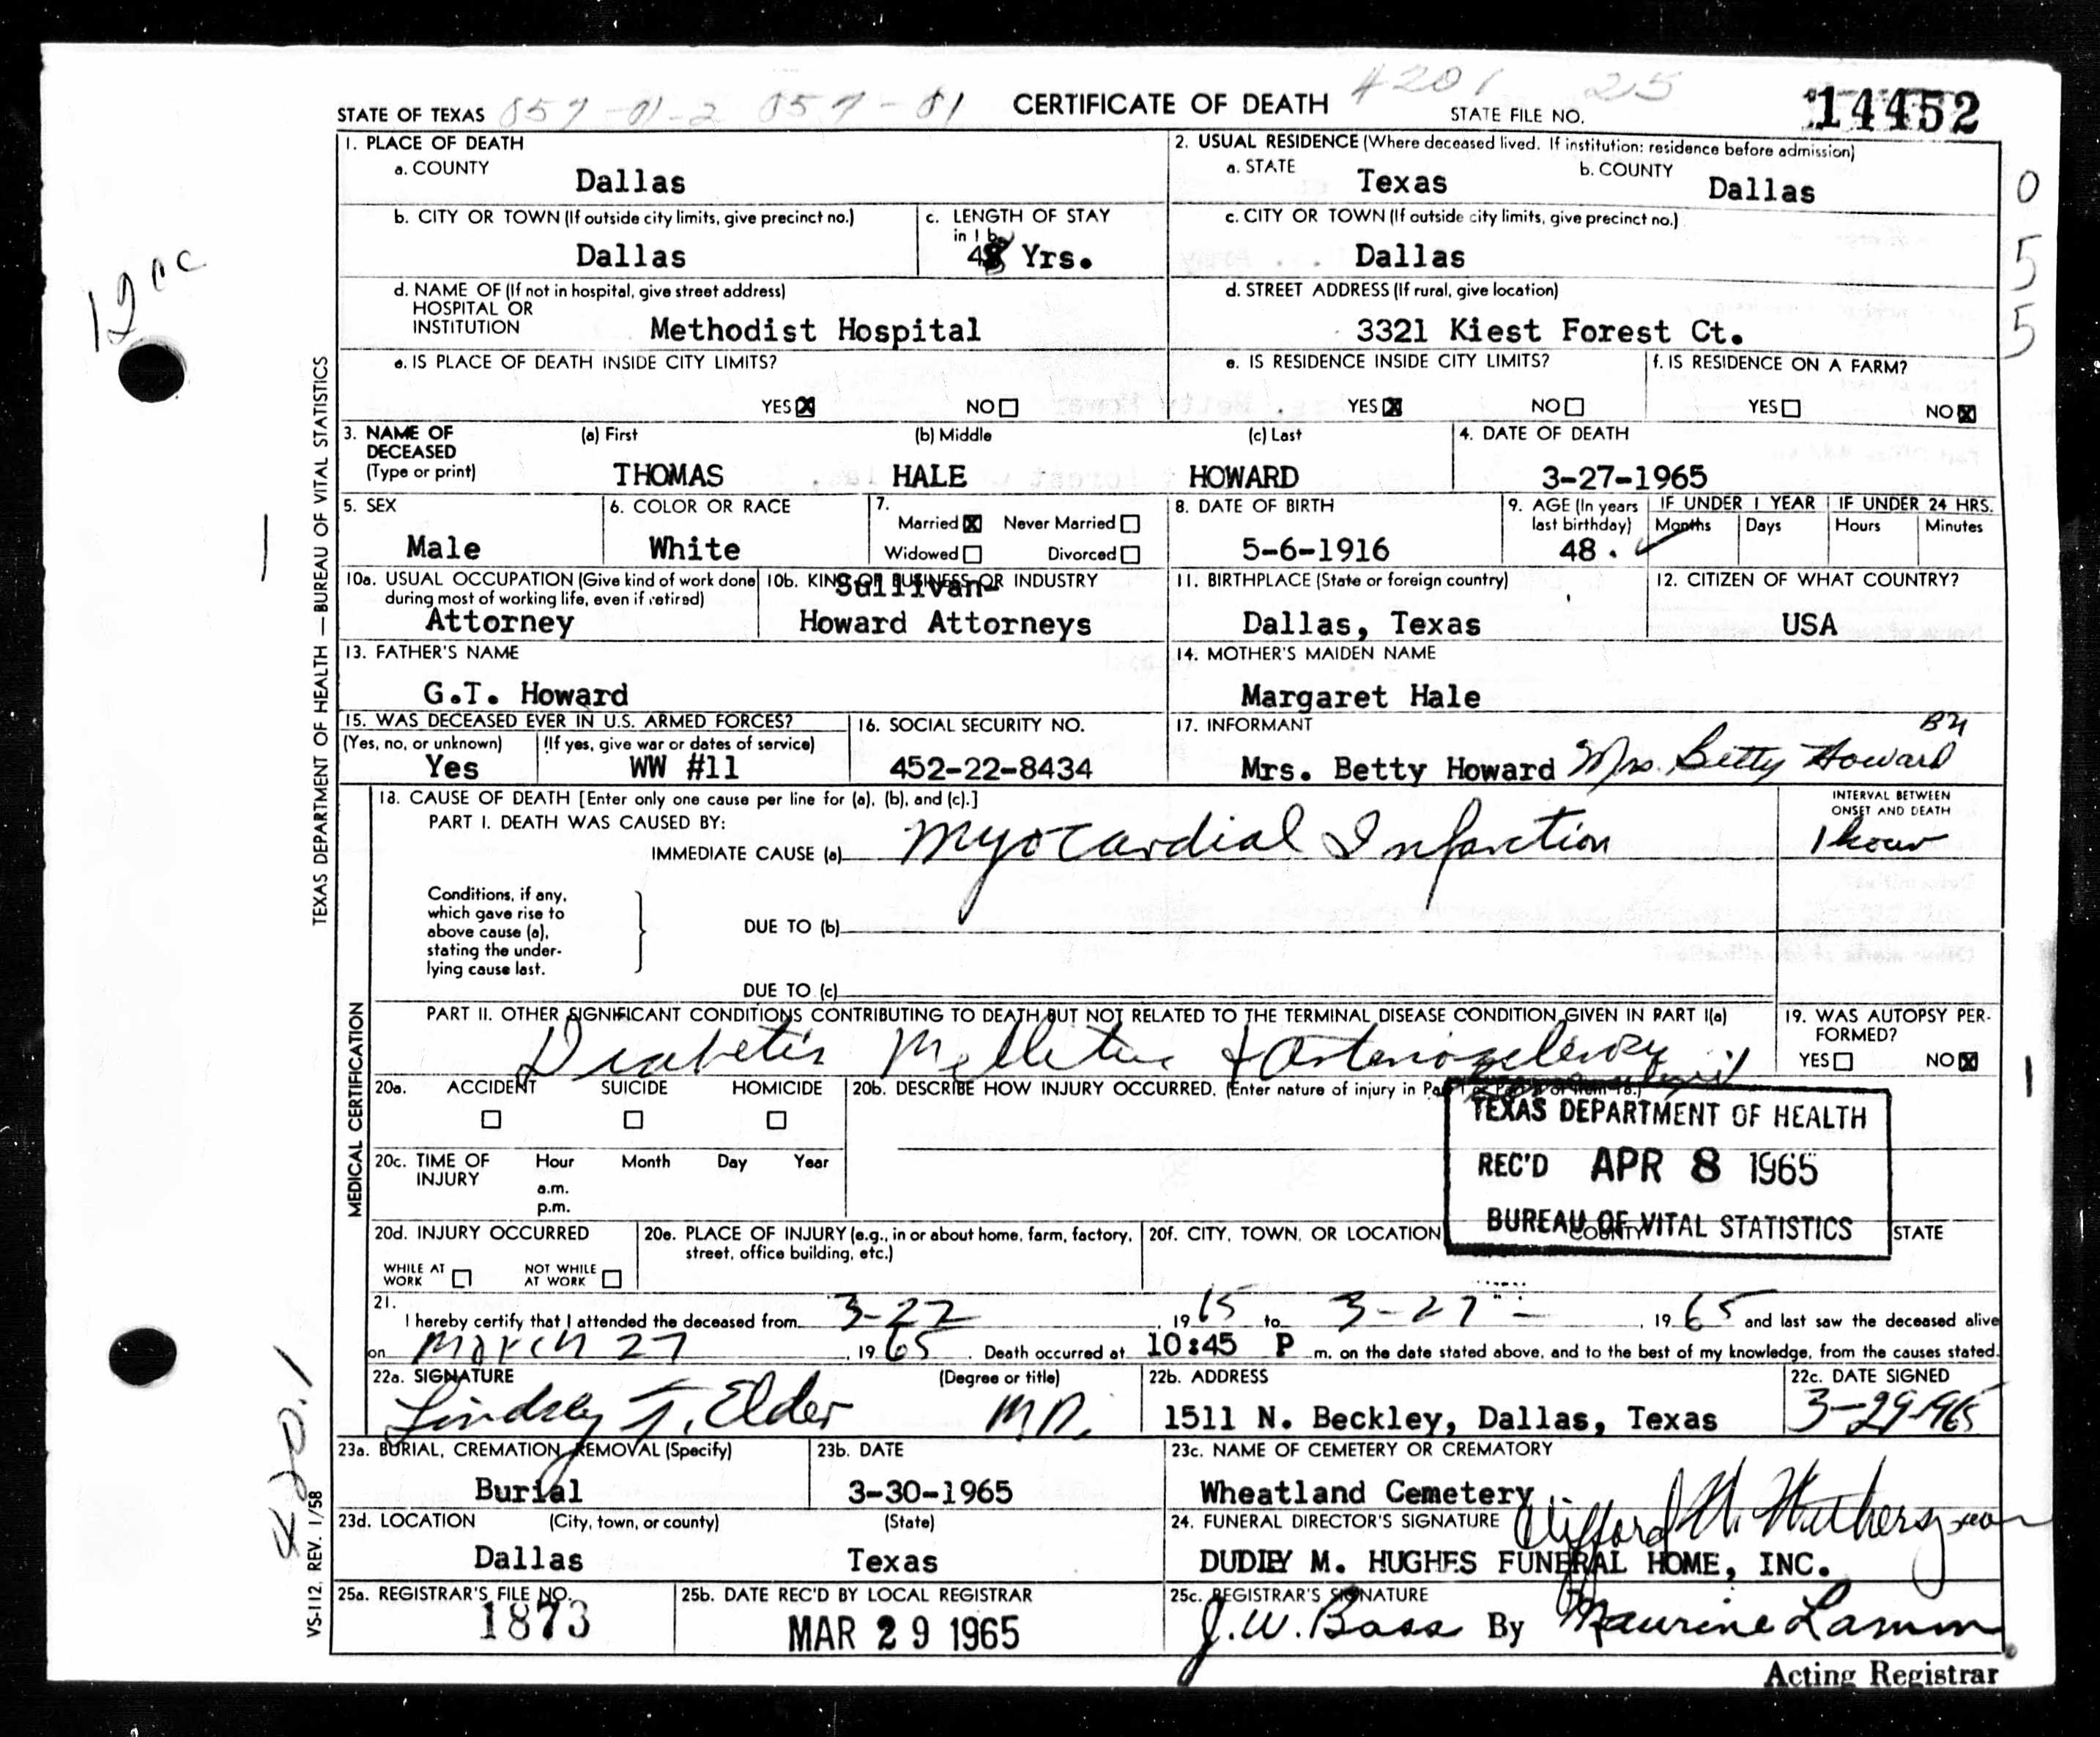 STATE OF TEXAS 057-01-2 057-01 CERTIFICATE OF DEATH 4201 25 STATE FILE NO. 14452
1. PLACE OF DEATH
a. COUNTY Dallas
2. USUAL RESIDENCE (Where deceased lived. If institution: residence before admission)
a. STATE Texas b. COUNTY Dallas
b. CITY OR TOWN (If outside city limits, give precinct no.) Dallas
c. LENGTH OF STAY in 1 b. 48 Yrs.
c. CITY OR TOWN (If outside city limits, give precinct no.) Dallas
d. NAME OF (If not in hospital, give street address)
HOSPITAL OR
INSTITUTION Methodist Hospital
d. STREET ADDRESS (If rural, give location)
3321 Kiest Forest Ct.
e. IS PLACE OF DEATH INSIDE CITY LIMITS?
YES NO
e. IS RESIDENCE INSIDE CITY LIMITS?
YES NO
f. IS RESIDENCE ON A FARM?
YES NO
0
5
5
3. NAME OF DECEASED (Type or print)
(a) First (b) Middle (c) Last
THOMAS HALE HOWARD
4. DATE OF DEATH
3-27-1965
5. SEX
Male
6. COLOR OR RACE
White
7. Married Never Married
Widowed Divorced
8. DATE OF BIRTH
5-6-1916
9. AGE (In years last birthday)
48.
IF UNDER 1 YEAR
Months Days
IF UNDER 24 HRS.
Hours Minutes
10a. USUAL OCCUPATION (Give kind of work done during most of working life, even if retired)
Attorney
10b. KIND OF BUSINESS OR INDUSTRY
Sullivan-
Howard Attorneys
11. BIRTHPLACE (State or foreign country)
Dallas, Texas
12. CITIZEN OF WHAT COUNTRY?
USA
13. FATHER'S NAME
G.T. Howard
14. MOTHER'S MAIDEN NAME
Margaret Hale
15. WAS DECEASED EVER IN U.S. ARMED FORCES?
(Yes, no, or unknown) (If yes, give war or dates of service)
Yes WW #11
16. SOCIAL SECURITY NO.
452-22-8434
17. INFORMANT
Mrs. Betty Howard Mrs. Betty Howard
18. CAUSE OF DEATH [Enter only one cause per line for (a), (b), and (c).]
PART I. DEATH WAS CAUSED BY:
IMMEDIATE CAUSE (a) Myocardial Infarction
INTERVAL BETWEEN
ONSET AND DEATH
1 hour
Conditions, if any,
which gave rise to
above cause (a),
stating the under-
lying cause last.
DUE TO (b)
DUE TO (c)
PART II. OTHER SIGNIFICANT CONDITIONS CONTRIBUTING TO DEATH BUT NOT RELATED TO THE TERMINAL DISEASE CONDITION GIVEN IN PART I(a)
Diabetes Mellitus
19. WAS AUTOPSY PER-
FORMED?
YES NO
20a. ACCIDENT SUICIDE HOMICIDE
20b. DESCRIBE HOW INJURY OCCURRED. (Enter nature of injury in
20c. TIME OF INJURY
Hour Month Day Year
a.m.
p.m.
TEXAS DEPARTMENT OF HEALTH
REC'D APR 8 1965
BUREAU OF VITAL STATISTICS
20d. INJURY OCCURRED
WHILE AT WORK NOT WHILE AT WORK
20e. PLACE OF INJURY (e.g., in or about home, farm, factory,
street, office building, etc.)
20f. CITY, TOWN, OR LOCATION COUNTY STATE
21.
I hereby certify that I attended the deceased from 3-22, 1965 to 3-27, 1965 and last saw the deceased alive
on March 27, 1965. Death occurred at 10:45 P m. on the date stated above, and to the best of my knowledge, from the causes stated.
22a. SIGNATURE (Degree or title)
Lindsey T. Elder M.D.
22b. ADDRESS
1511 N. Beckley, Dallas, Texas
22c. DATE SIGNED
3-29-1965
23a. BURIAL, CREMATION, REMOVAL (Specify)
Burial
23b. DATE
3-30-1965
23c. NAME OF CEMETERY OR CREMATORY
Wheatland Cemetery
23d. LOCATION (City, town, or county) (State)
Dallas Texas
24. FUNERAL DIRECTOR'S SIGNATURE
DUDLEY M. HUGHES FUNERAL HOME, INC.
25a. REGISTRAR'S FILE NO.
1873
25b. DATE REC'D BY LOCAL REGISTRAR
MAR 29 1965
25c. REGISTRAR'S SIGNATURE
J.W. Bass By Maurine Lamm
Acting Registrar
TEXAS DEPARTMENT OF HEALTH — BUREAU OF VITAL STATISTICS
MEDICAL CERTIFICATION
VS-112, REV. 1/58
420.1